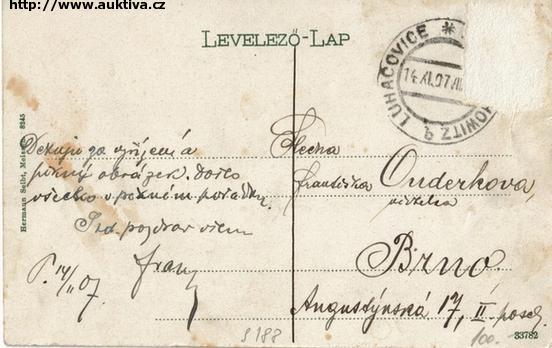 http://www.auktiva.cz
LEVELEZŐ-LAP
LUHAČOVICE *
14.XI.07
HOWITZ
Hermann Seibt, Meissen 8245
Dekuju za vyřízení a
pěkný obrázek. Došlo
všecko v pěkném pořádku.
Srd. pozdrav všem
Franz
14/11 07.
Slečna
Františka Onderkova,
učitelka
Brno.
Augustýnská 17, II. posch.
9188
100.-
33782